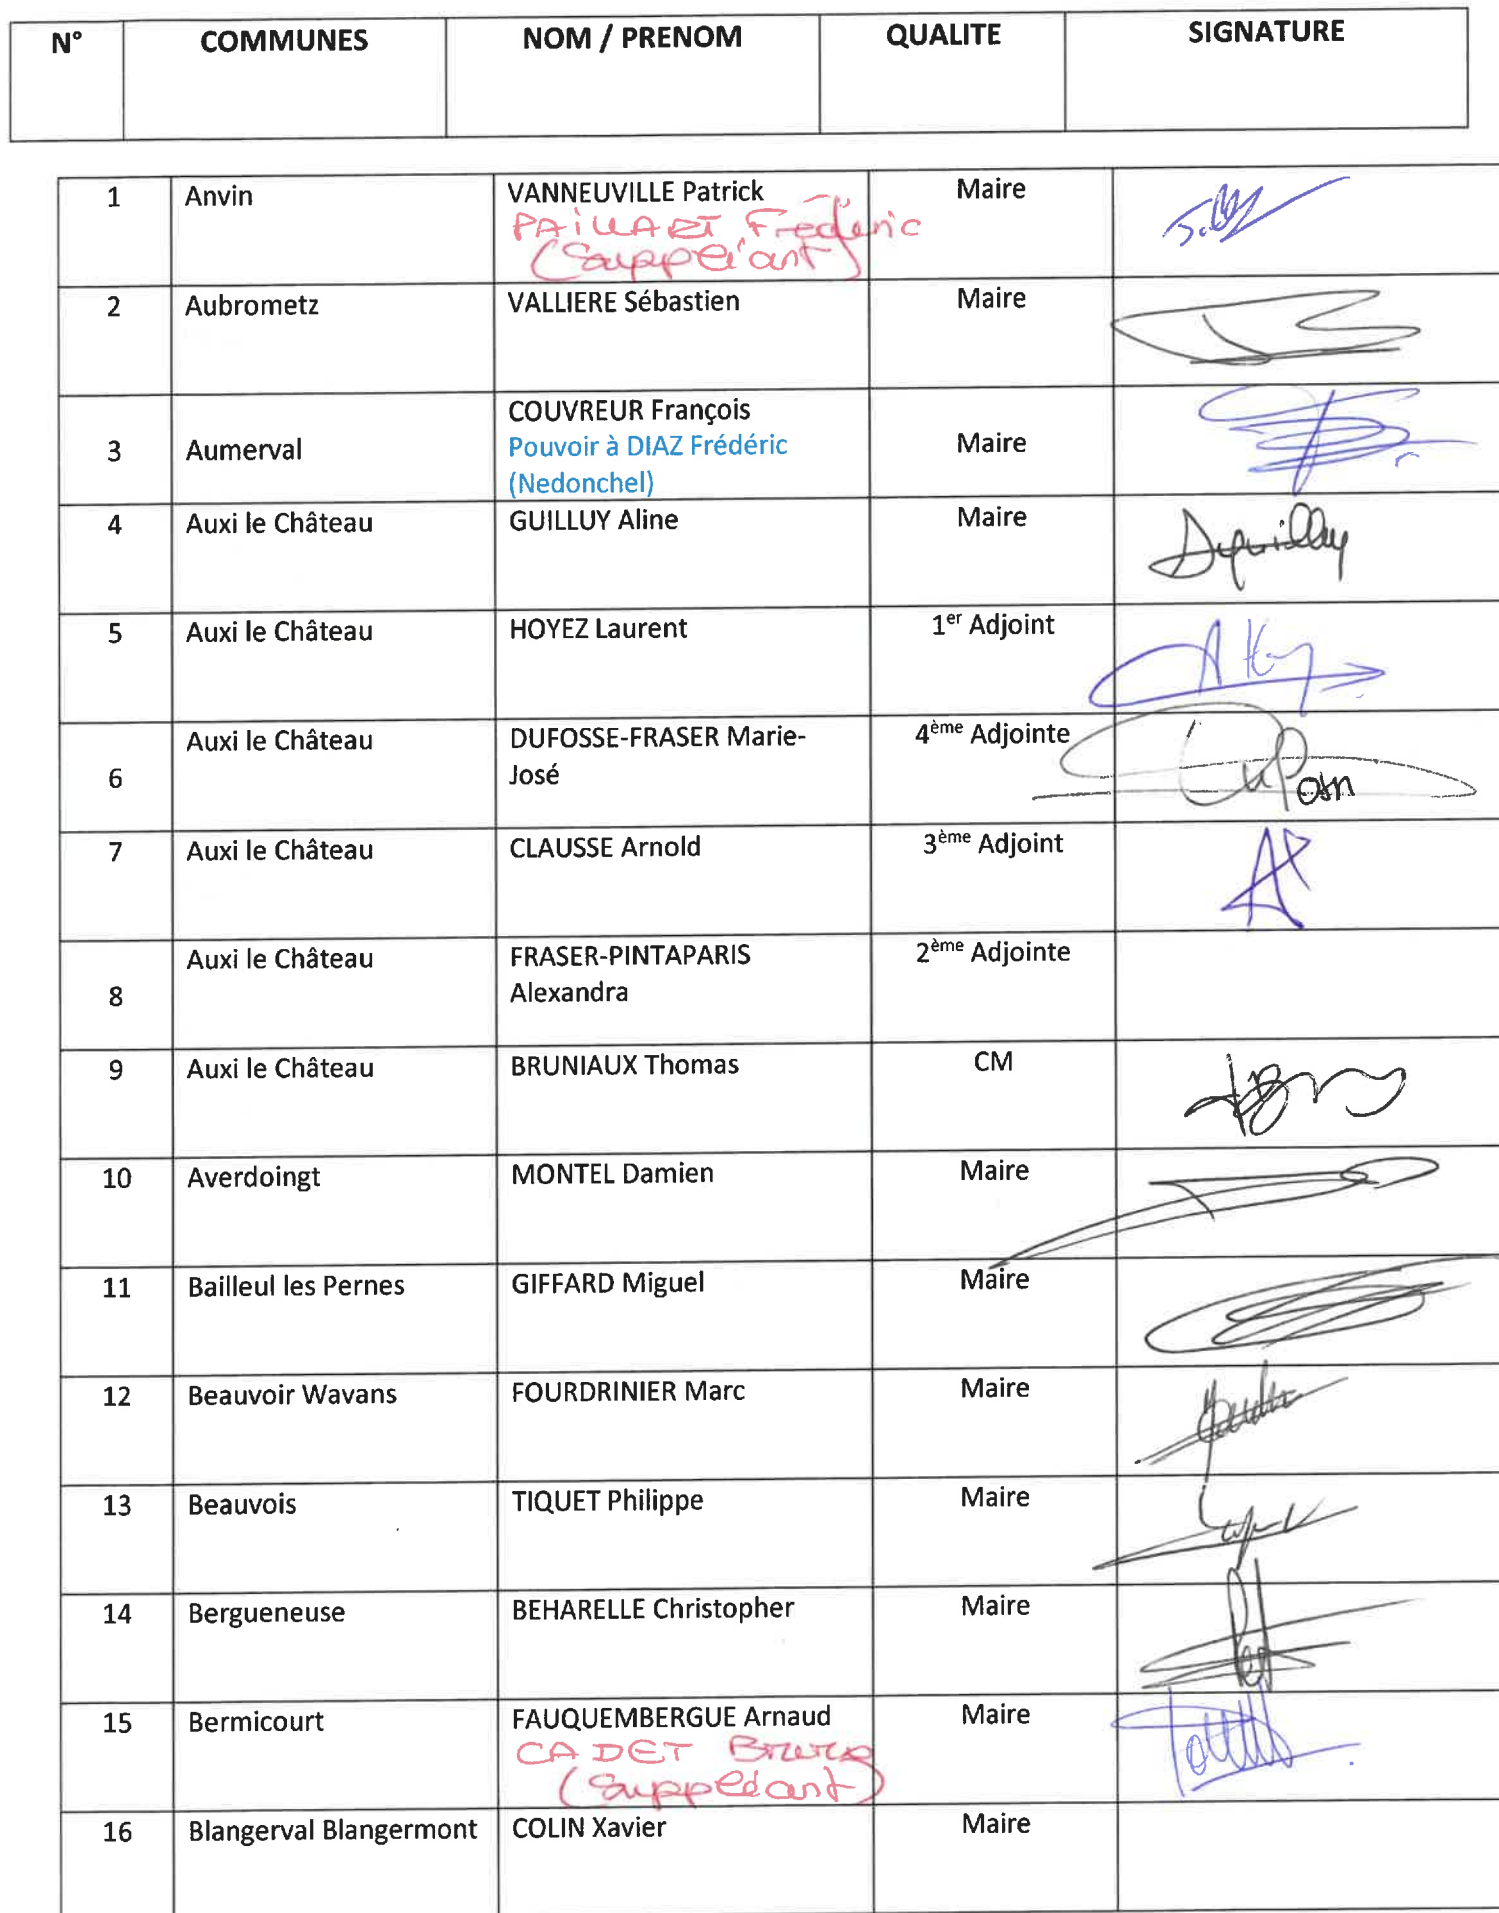 N° COMMUNES NOM / PRENOM QUALITE SIGNATURE
1 Anvin VANNEUVILLE Patrick Maire
PAILLART Frédéric
(Suppléant)
2 Aubrometz VALLIERE Sébastien Maire
COUVREUR François
3 Aumerval Pouvoir à DIAZ Frédéric Maire
(Nedonchel)
4 Auxi le Château GUILLUY Aline Maire
5 Auxi le Château HOYEZ Laurent 1er Adjoint
Auxi le Château DUFOSSE-FRASER Marie- 4ème Adjointe
6 José
7 Auxi le Château CLAUSSE Arnold 3ème Adjoint
Auxi le Château FRASER-PINTAPARIS 2ème Adjointe
8 Alexandra
9 Auxi le Château BRUNIAUX Thomas CM
10 Averdoingt MONTEL Damien Maire
11 Bailleul les Pernes GIFFARD Miguel Maire
12 Beauvoir Wavans FOURDRINIER Marc Maire
13 Beauvois TIQUET Philippe Maire
14 Bergueneuse BEHARELLE Christopher Maire
15 Bermicourt FAUQUEMBERGUE Arnaud Maire
CADET Bruno
(Suppléant)
16 Blangerval Blangermont COLIN Xavier Maire